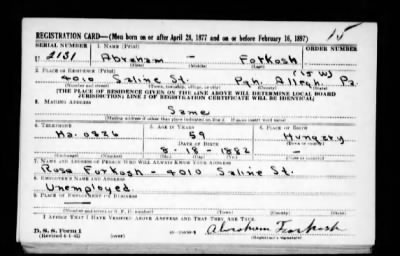 15
REGISTRATION CARD—(Men born on or after April 28, 1877 and on or before February 16, 1897)
SERIAL NUMBER 1. NAME (Print) ORDER NUMBER
U 2131 Abraham - Forkosh
2. PLACE OF RESIDENCE (Print) (15 W)
4010 Saline St. Pgh. Allegh. Pa.
(Number and street) (Town, township, village, or city) (County) (State)
[THE PLACE OF RESIDENCE GIVEN ON THE LINE ABOVE WILL DETERMINE LOCAL BOARD
JURISDICTION; LINE 2 OF REGISTRATION CERTIFICATE WILL BE IDENTICAL]
3. MAILING ADDRESS
Same
[Mailing address if other than place indicated on line 2. If same insert word same]
4. TELEPHONE 5. AGE IN YEARS 6. PLACE OF BIRTH
Ha. 0826 59 Hungary
DATE OF BIRTH (Town or county)
8-18-1882
(Exchange) (Number) (Mo.) (Day) (Yr.) (State or country)
7. NAME AND ADDRESS OF PERSON WHO WILL ALWAYS KNOW YOUR ADDRESS
Rose Forkosh - 4010 Saline St.
8. EMPLOYER'S NAME AND ADDRESS
Unemployed.
9. PLACE OF EMPLOYMENT OR BUSINESS
(Number and street or R. F. D. number) (Town) (County) (State)
I AFFIRM THAT I HAVE VERIFIED ABOVE ANSWERS AND THAT THEY ARE TRUE.
D. S. S. Form 1
(Revised 4-1-42) (over) Abraham Forkosh
(Registrant's signature)